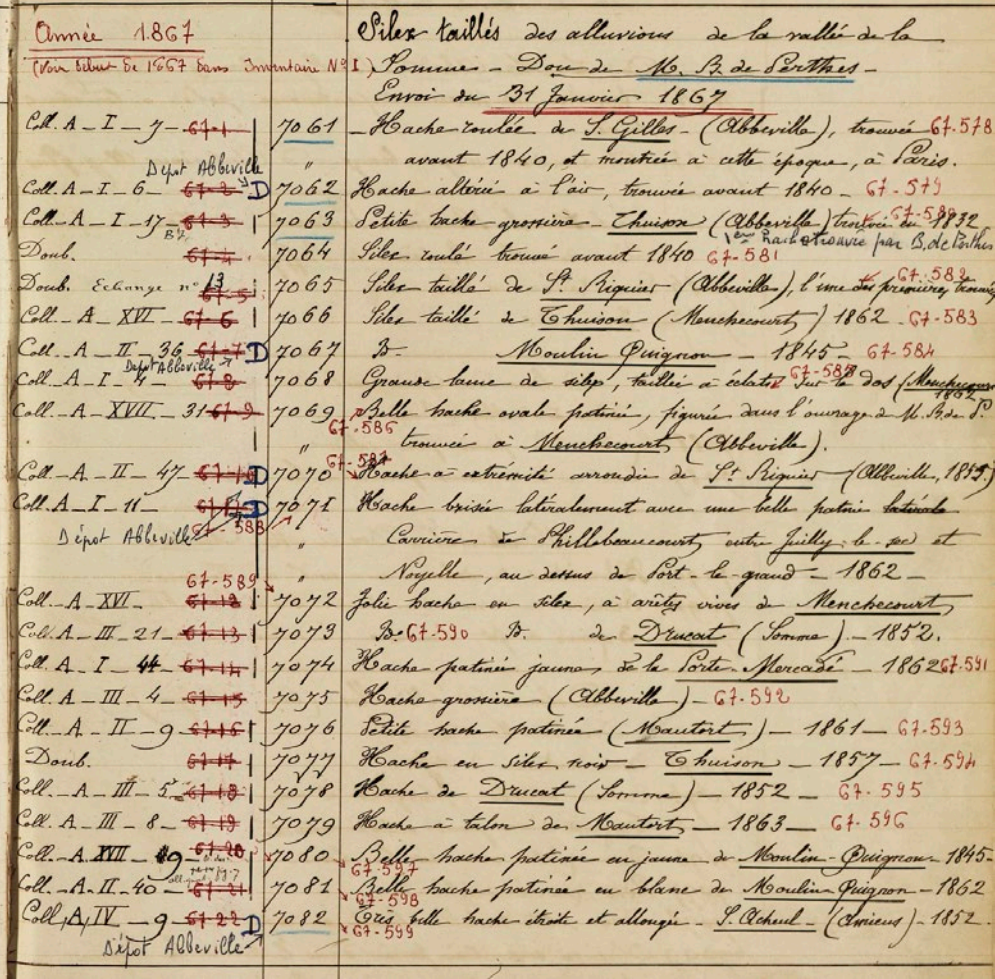 Année 1867 Silex taillés des alluvions de la vallée de la
(Voir début de 1867 dans Inventaire N° I) Somme - Don de M. B. de Perthes -
Envoi du 31 Janvier 1867
Coll. A - I - 7 - 67-1 7061 - Hache roulée de S. Gilles - (Abbeville), trouvée 67-578
" avant 1840, et montrée à cette époque, à Paris.
Dépot Abbeville
Coll. A - I - 6 - 67-2 D 7062 Hache altérée à l'air, trouvée avant 1840 - 67-579
Coll. A - I - 17 - 67-3 7063 Petite hache grossière - Thuison (Abbeville) trouvée en 1832 67-580
1ère hache trouvée par B. de Perthes
Doub. 67-4 7064 Silex roulé trouvé avant 1840 67-581
Doub. Echange n° 13 67-5 7065 Silex taillé de St Riquier (Abbeville), l'une des premières trouvées 67-582
Coll. A - XVI - 67-6 7066 Silex taillé de Thuison (Menchecourt) 1862 - 67-583
Coll. A - II - 36 67-7 D 7067 D° Moulin Quignon - 1845 - 67-584
Dépot Abbeville
Coll. A - I - 4 - 67-8 7068 Grande lame de silex, taillée à éclats sur le dos (Menchecourt 1862 67-585
Coll. A - XVII - 31 67-9 7069 Belle hache ovale patinée, figurée dans l'ouvrage de M. B. de P.
67-586
" trouvée à Menchecourt (Abbeville).
67-587
Coll. A - II - 47 - 67-10 D 7070 Hache à extrémité arrondie de St Riquier - (Abbeville, 1855)
Coll. A - I - 11 - 67-11 D 7071 Hache brisée latéralement avec une belle patine latérale
Dépot Abbeville 67-588 " Carrière de entre Juilly-le-sec et
" Noyelle, au dessus de Port-le-grand - 1862 -
67-589
Coll. A - XVI - 67-12 7072 Jolie hache en silex, à arêtes vives de Menchecourt
Coll. A - III - 21 - 67-13 7073 D° 67-590 D° de Drucat (Somme) - 1852.
Coll. A - I - 44 - 67-14 7074 Hache patinée jaune, de la Porte-Mercadé - 1862 67-591
Coll. A - III - 4 - 67-15 7075 Hache grossière (Abbeville) - 67-592
Coll. A - II - 9 - 67-16 7076 Petite hache patinée (Mautort) - 1861 - 67-593
Doub. 67-17 7077 Hache en silex noir - Thuison - 1857 - 67-594
Coll. A - III - 5 - 67-18 7078 Hache de Drucat (Somme) - 1852 - 67-595
Coll. A - III - 8 - 67-19 7079 Hache à talon de Mautort - 1863 - 67-596
Coll. A - XVII - 19 - 67-20 7080 Belle hache patinée en jaune de Moulin-Quignon - 1845 -
67-597
Coll. A - II - 40 - 67-21 7081 Belle hache patinée en blanc de Moulin-Quignon - 1862
67-598
Coll. A, IV - 9 - 67-22 D 7082 Très belle hache étroite et allongée - S. Acheul - (Amiens) - 1852.
67-599
Dépot Abbeville